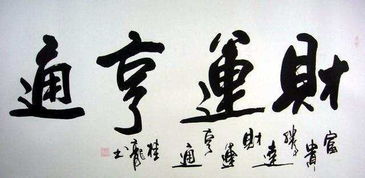 財運亨通
富貴騰達財運亨通
桂龍